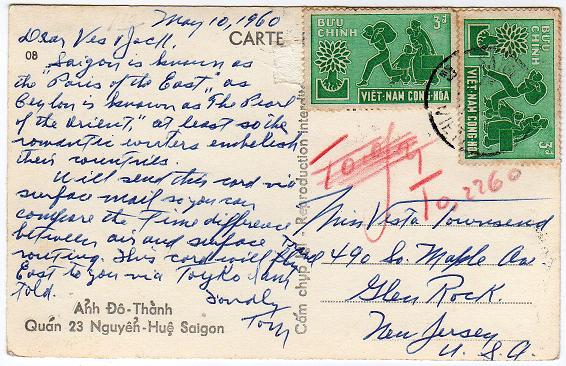 May 10, 1960
Dear Ves & Jack.
Saigon is known as
the "Paris of the East," as
Ceylon is known as The Pearl
of the Orient," at least so the
romantic writers embellish
their countries.
Will send this card via
surface mail so you can
compare the Time difference
between air and surface
routing. This card will travel
East to you via Toyko I am
told.
Fondly
Tom
08
CARTE
Ảnh Đô-Thành
Quán 23 Nguyễn-Huệ Saigon
Reproduction interdite
Cấm chụp lại
BƯU CHÍNH
3đ
VIỆT-NAM CỘNG-HÒA
BƯU CHÍNH
3đ
VIỆT-NAM CỘNG-HÒA
To, 2260
Miss Vesta Townsend
490 So. Maple Ave
Glen Rock.
New Jersey
U. S. A.